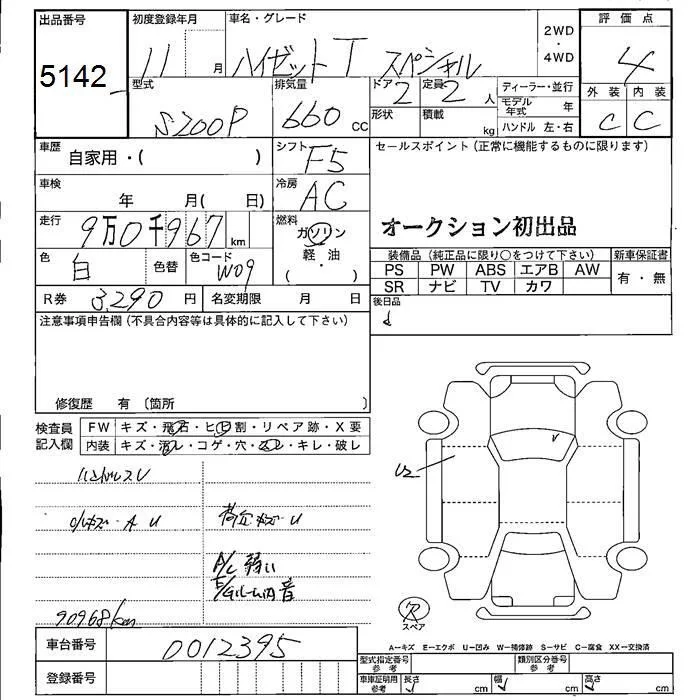 出品番号
5142
初度登録年月
11月
車名・グレード
ハイゼットT スペシャル
2WD
・
4WD
評価点
4
外装 内装
C C
型式
S200P
排気量
660 CC
ドア 2
定員 2 人
形状
積載 kg
ディーラー・並行
モデル年式 年
ハンドル 左・右
車歴
自家用・( )
シフト
F5
セールスポイント(正常に機能するものに限ります)
オークション初出品
車検
年 月( 日)
冷房
AC
走行
9万0千967 km
燃料
ガソリン
・
軽・油
( )
色
白
色替
色コード
W09
装備品(純正品に限り○をつけて下さい)
PS PW ABS エアB AW
SR ナビ TV カワ
新車保証書
有・無
R券 3,290 円
名変期限 月 日
後日品
注意事項申告欄(不具合内容等は具体的に記入して下さい)
修復歴 有 (箇所 )
検査員
記入欄
FW キズ・飛石・ヒビ割・リペア跡・X要
内装 キズ・汚レ・コゲ・穴・スレ・キレ・破レ
ハンドルスレ
小キズ・A U
荷台キズ・U
A/C 弱い
E/Gルーム内音
90968km
U2
R
スペア
A−キズ E−エクボ U−凹み W−補修跡 S−サビ C−腐食 XX−交換済
車台番号
0012395
登録番号
型式指定番号
参考
類別区分番号
参考
車庫証明用
参考
長さ cm
幅 cm
高さ cm